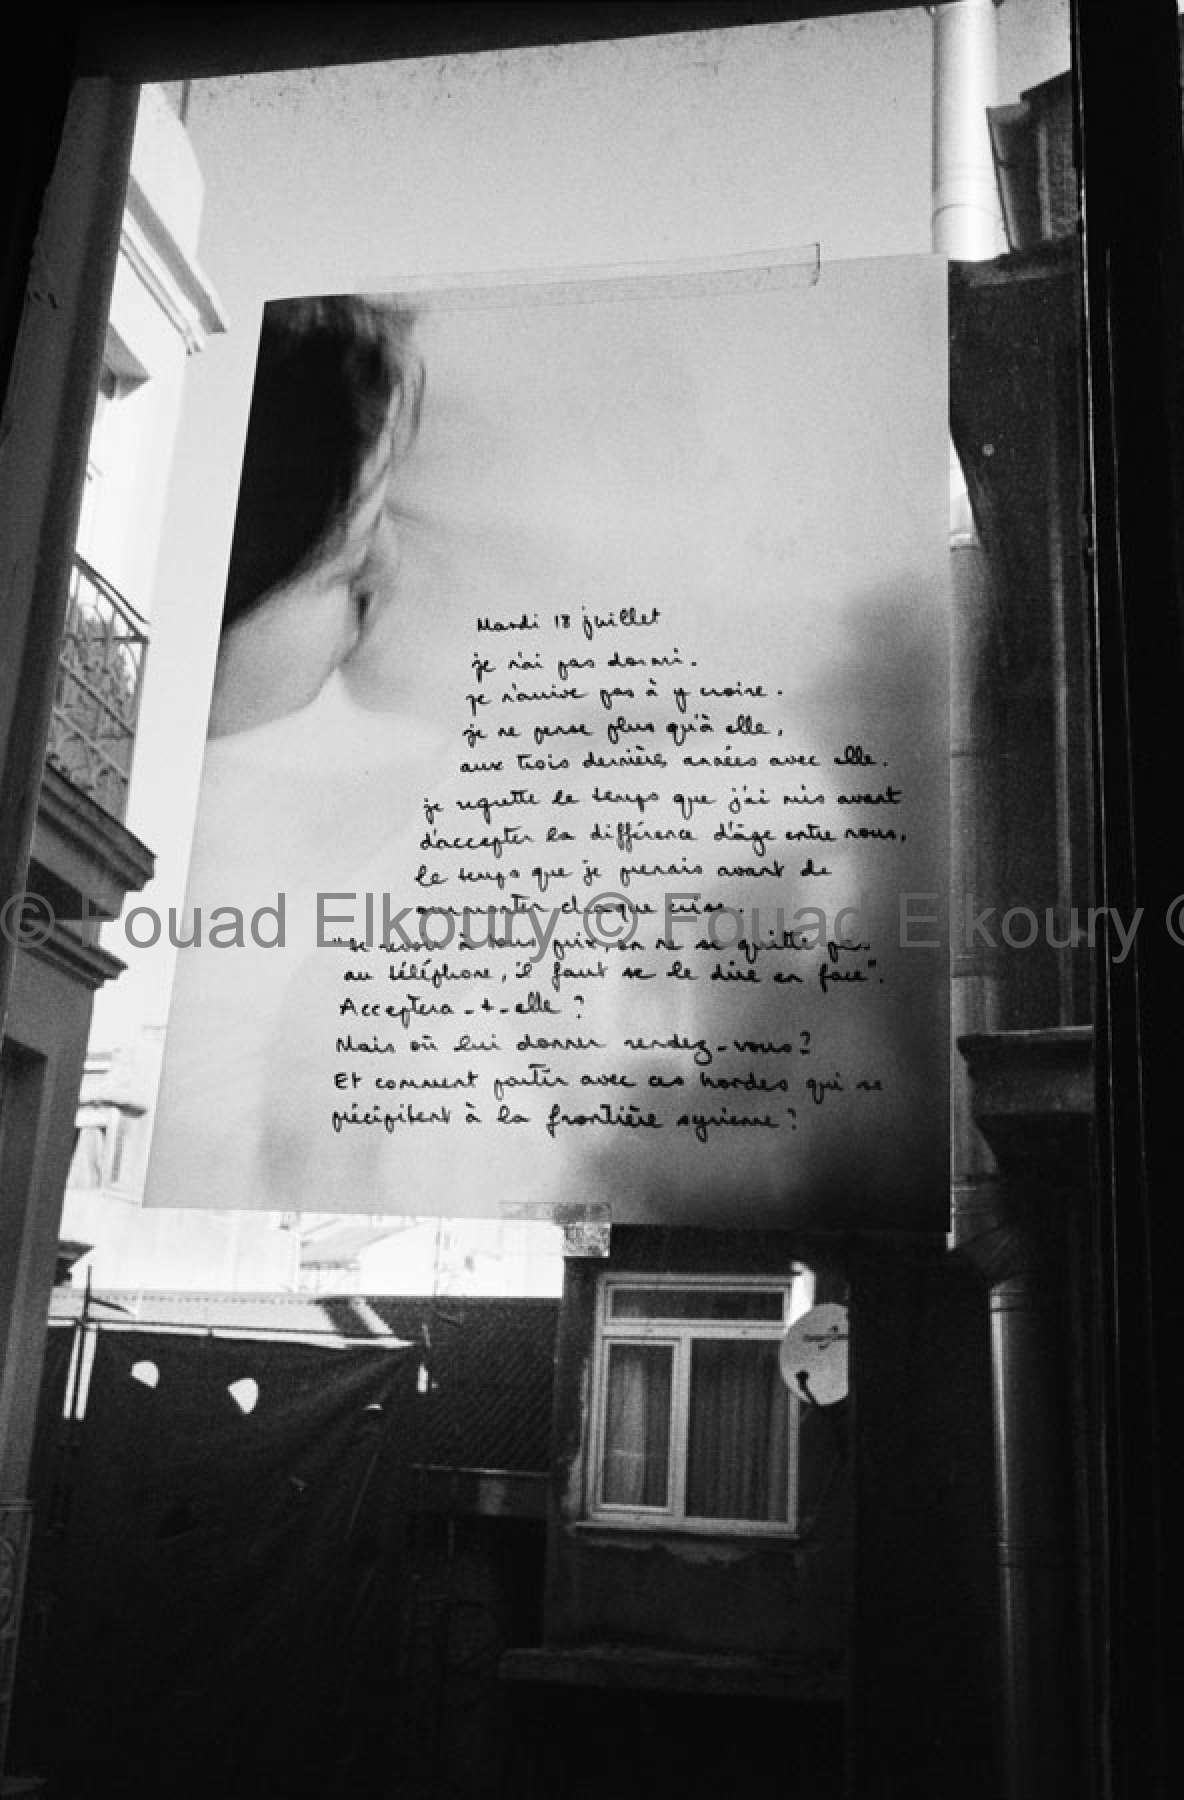 Mardi 18 juillet
je n'ai pas dormi.
je n'arrive pas à y croire.
je ne pense plus qu'à elle,
aux trois dernières années avec elle.
je regrette le temps que j'ai mis avant
d'accepter la différence d'âge entre nous,
le temps que je prenais avant de
surmonter chaque crise.
© Fouad Elkoury © Fouad Elkoury ©
"Se revoir à tous prix, on ne se quitte pas
au téléphone, il faut se le dire en face".
Acceptera-t-elle ?
Mais où lui donner rendez-vous ?
Et comment partir avec ces hordes qui se
précipitent à la frontière syrienne ?